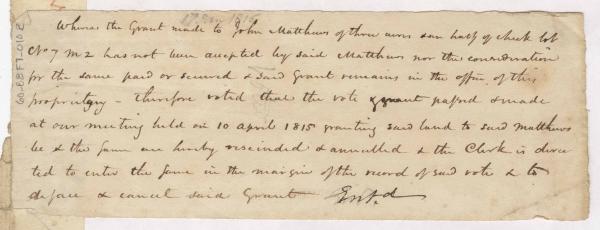 Whereas the Grant made to John Matthews of three acres & an half of check lot
No 7 m 2 has not been accepted by said Matthews nor the consideration
for the same paid or secured & said Grant remains in the office of this
proprietory - therefore voted that the vote & grant passed & made
at our meeting held on 10 april 1815 granting said land to said Matthews
be & the same are hereby rescinded & annulled & the Clerk is direc
ted to enter the same in the margin of the record of said vote & to
deface & cancel said Grant Entd